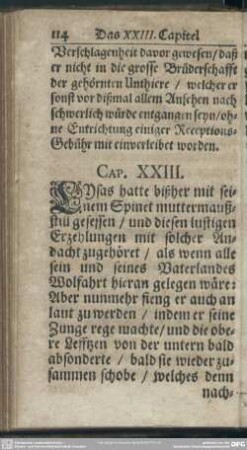 114 Das XXIII. Capitel
Verschlagenheit davor gewesen/ daß
er nicht in die grosse Brüderschafft
der gehörnten Unthiere / welcher er
sonst vor dißmal allem Ansehen nach
schwerlich würde entgangen seyn/oh-
ne Entrichtung einiger Receptions-
Gebühr mit einverleibet worden.
CAP. XXIII.
LYsas hatte bißher mit sei-
nem Spinet muttermauß-
still gesessen / und diesen lustigen
Erzehlungen mit solcher An-
dacht zugehöret / als wenn alle
sein und seines Vaterlandes
Wolfahrt hieran gelegen wäre:
Aber nunmehr fieng er auch an
laut zu werden / indem er seine
Zunge rege machte/ und die obe-
re Lefftzen von der untern bald
absonderte / bald sie wieder zu-
sammen schobe / welches denn
nach-